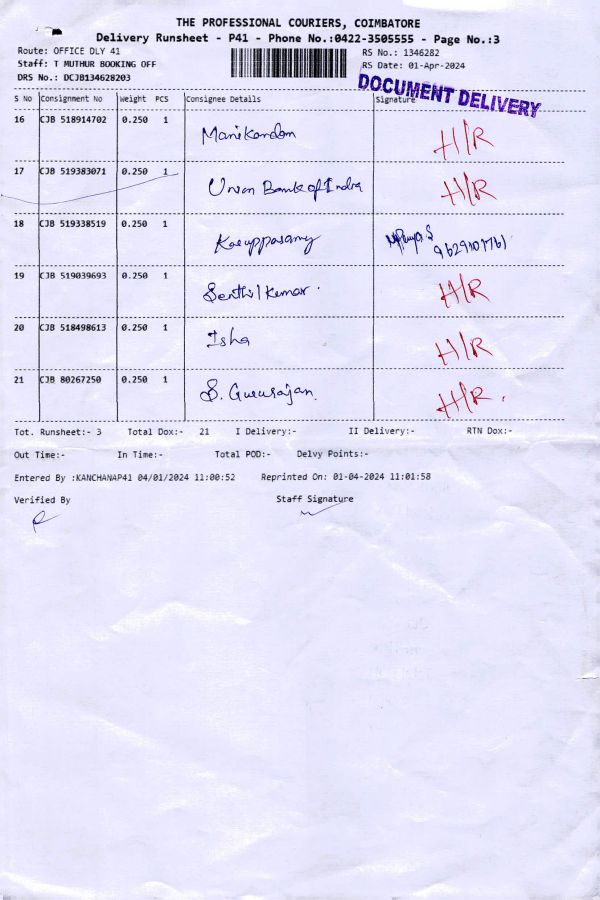 THE PROFESSIONAL COURIERS, COIMBATORE
Delivery Runsheet - P41 - Phone No.:0422-3505555 - Page No.:3
Route: OFFICE DLY 41 RS No.: 1346282
Staff: T MUTHUR BOOKING OFF RS Date: 01-Apr-2024
DRS No.: DCJB134628203
DOCUMENT DELIVERY
S No Consignment No Weight PCS Consignee Details Signature
16 CJB 518914702 0.250 1 Manikandan H/R
17 CJB 519383071 0.250 1 Union Bank of India H/R
18 CJB 519338519 0.250 1 Karuppasamy
19 CJB 519039693 0.250 1 Senthil kumar. H/R
20 CJB 518498613 0.250 1 Isha H/R
21 CJB 80267250 0.250 1 S. Gururajan. H/R.
Tot. Runsheet:- 3 Total Dox:- 21 I Delivery:- II Delivery:- RTN Dox:-
Out Time:- In Time:- Total POD:- Delvy Points:-
Entered By :KANCHANAP41 04/01/2024 11:00:52 Reprinted On: 01-04-2024 11:01:58
Verified By Staff Signature